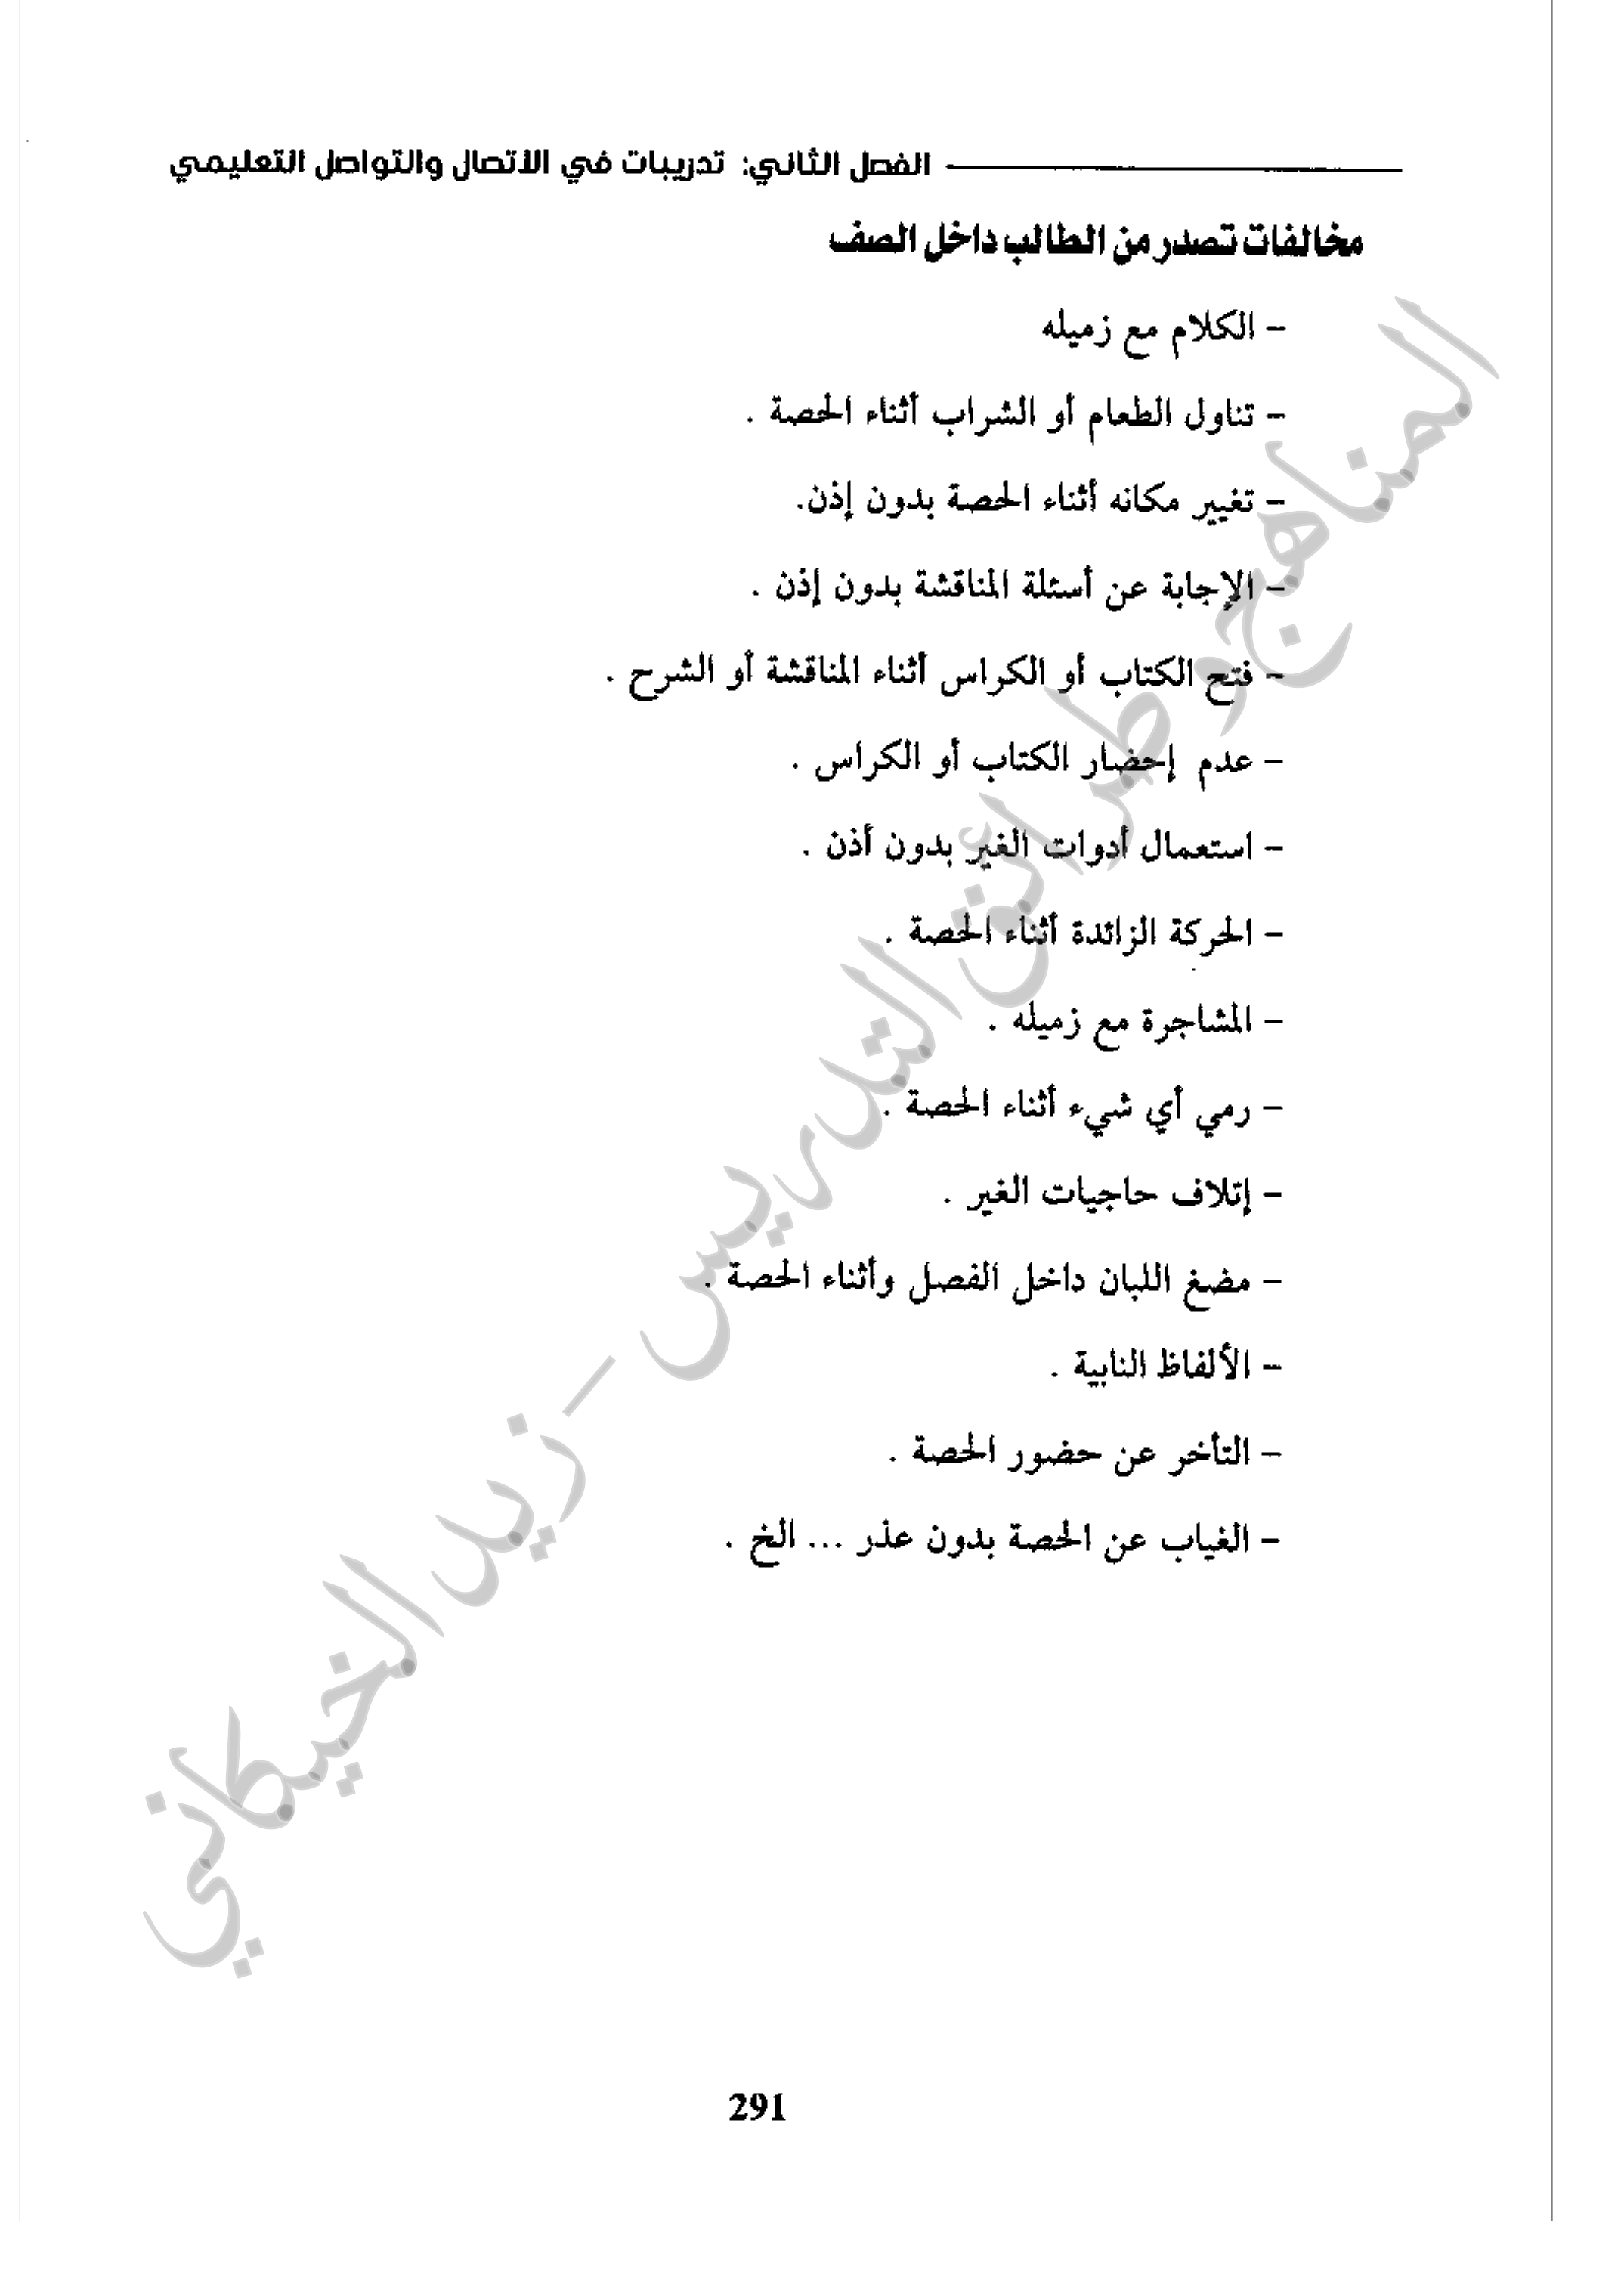 الفصل الثاني: تدريبات في الاتصال والتواصل التعليمي
مخالفات تصدر من الطالب داخل الصف
- الكلام مع زميله
- تناول الطعام أو الشراب أثناء الحصة .
- تغيير مكانه أثناء الحصة بدون إذن.
- الإجابة عن أسئلة المناقشة بدون إذن .
- فتح الكتاب أو الكراس أثناء المناقشة أو الشرح .
- عدم إحضار الكتاب أو الكراس .
- استعمال أدوات الغير بدون أذن .
- الحركة الزائدة أثناء الحصة .
- المشاجرة مع زميله .
- رمي أي شيء أثناء الحصة .
- إتلاف حاجيات الغير .
- مضغ اللبان داخل الفصل وأثناء الحصة .
- الألفاظ النابية .
- التأخر عن حضور الحصة .
- الغياب عن الحصة بدون عذر ... الخ .
المناهج وطرائق التدريس - زيد الخيكاني
291